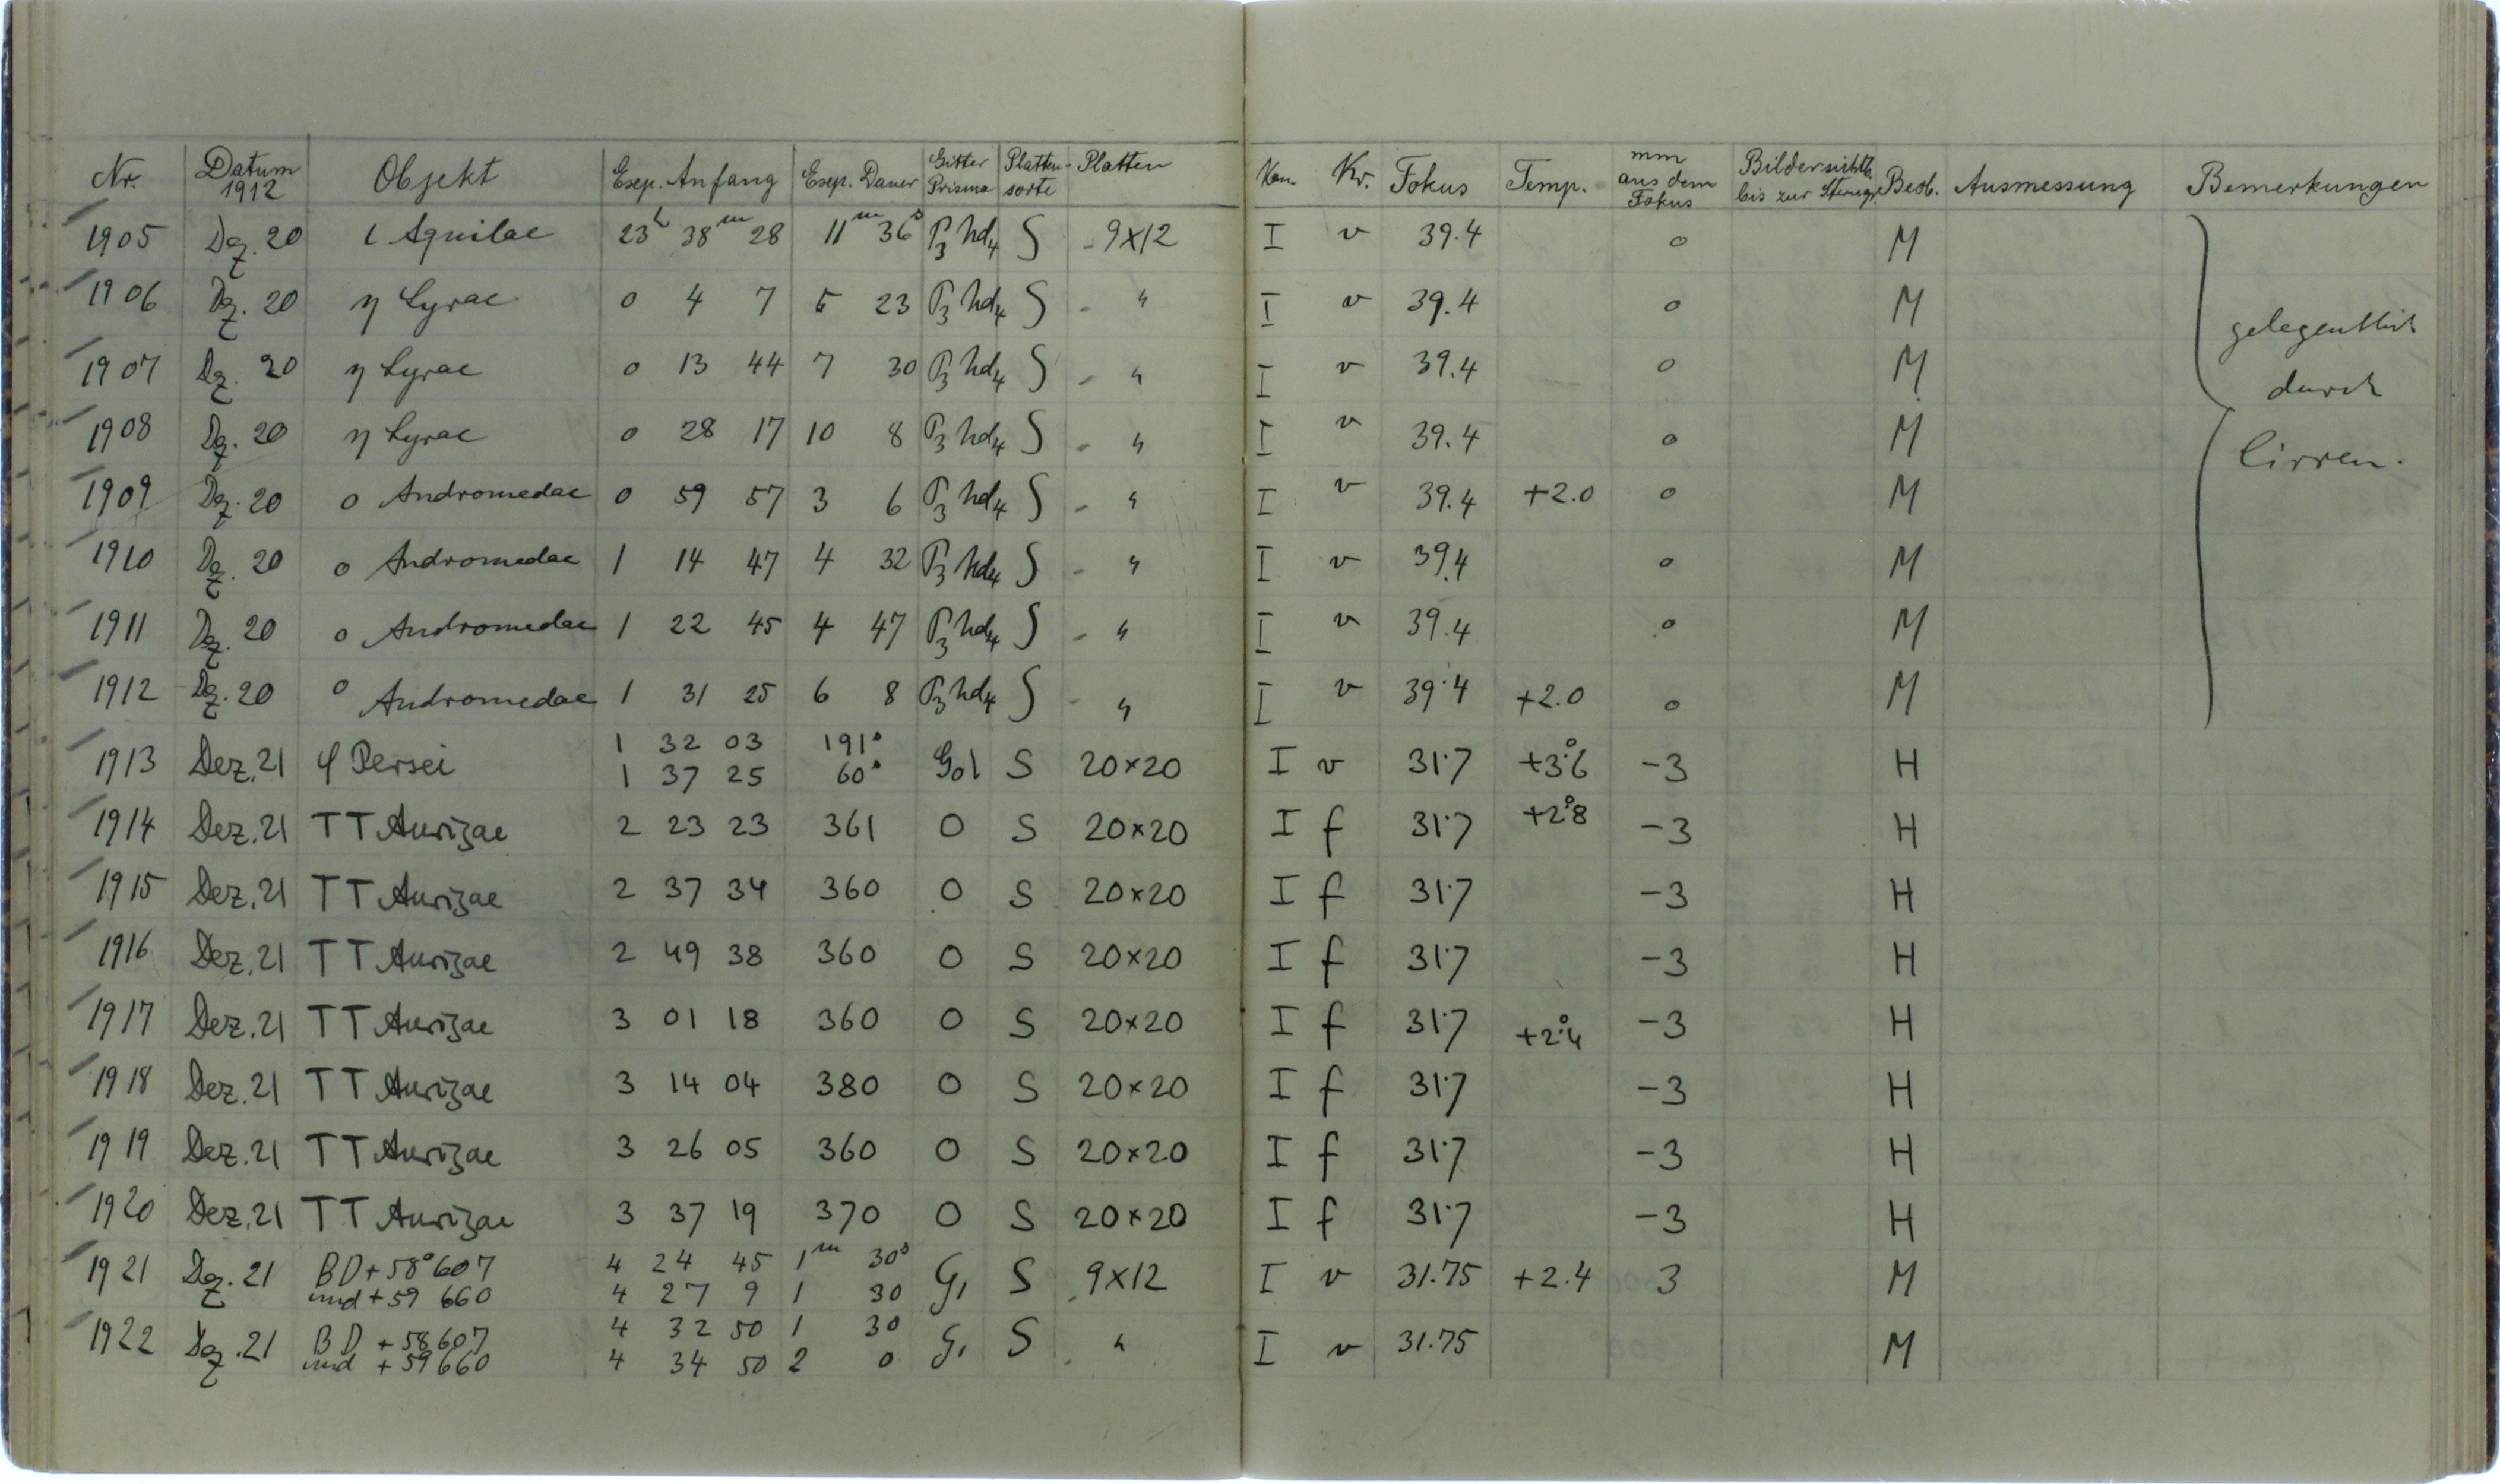 Nr. Datum 1912 Objekt Exp. Anfang Exp. Dauer Gitter Prisma Platten-sorte Platten Kr. Fokus Temp. mm aus dem Fokus Bilder sichtb. bis zur Sterngr. Beob. Ausmessung Bemerkungen
1905 Dez. 20 ι Aquilae 23h 38m 28 11m 36s P3 hd4 S 9x12 I v 39.4 0 M
1906 Dez. 20 η Lyrae 0 4 7 5 23 P3 hd4 S " I v 39.4 0 M gelegentlich
1907 Dez. 20 η Lyrae 0 13 44 7 30 P3 hd4 S " I v 39.4 0 M durch
1908 Dez. 20 η Lyrae 0 28 17 10 8 P3 hd4 S " I v 39.4 0 M Cirren.
1909 Dez. 20 o Andromedae 0 59 57 3 6 P3 hd4 S " I v 39.4 +2.0 0 M
1910 Dez. 20 o Andromedae 1 14 47 4 32 P3 hd4 S " I v 39.4 0 M
1911 Dez. 20 o Andromedae 1 22 45 4 47 P3 hd4 S " I v 39.4 0 M
1912 Dez. 20 o Andromedae 1 31 25 6 8 P3 hd4 S " I v 39.4 +2.0 0 M
1913 Dez. 21 φ Persei 1 32 03 191s Go1 S 20×20 I v 31.7 +3°.6 -3 H
1 37 25 60s
1914 Dez. 21 TT Aurigae 2 23 23 361 0 S 20×20 I f 31.7 +2°.8 -3 H
1915 Dez. 21 TT Aurigae 2 37 34 360 0 S 20×20 I f 31.7 -3 H
1916 Dez. 21 TT Aurigae 2 49 38 360 0 S 20×20 I f 31.7 -3 H
1917 Dez. 21 TT Aurigae 3 01 18 360 0 S 20×20 I f 31.7 +2°.4 -3 H
1918 Dez. 21 TT Aurigae 3 14 04 380 0 S 20×20 I f 31.7 -3 H
1919 Dez. 21 TT Aurigae 3 26 05 360 0 S 20×20 I f 31.7 -3 H
1920 Dez. 21 TT Aurigae 3 37 19 370 0 S 20×20 I f 31.7 -3 H
1921 Dez. 21 BD+58°607 4 24 45 1m 30s G1 S 9x12 I v 31.75 +2.4 3 M
und +59 660 4 27 9 1 30
1922 Dez. 21 BD +58 607 4 32 50 1 30 G1 S " I v 31.75 M
und +59 660 4 34 50 2 0